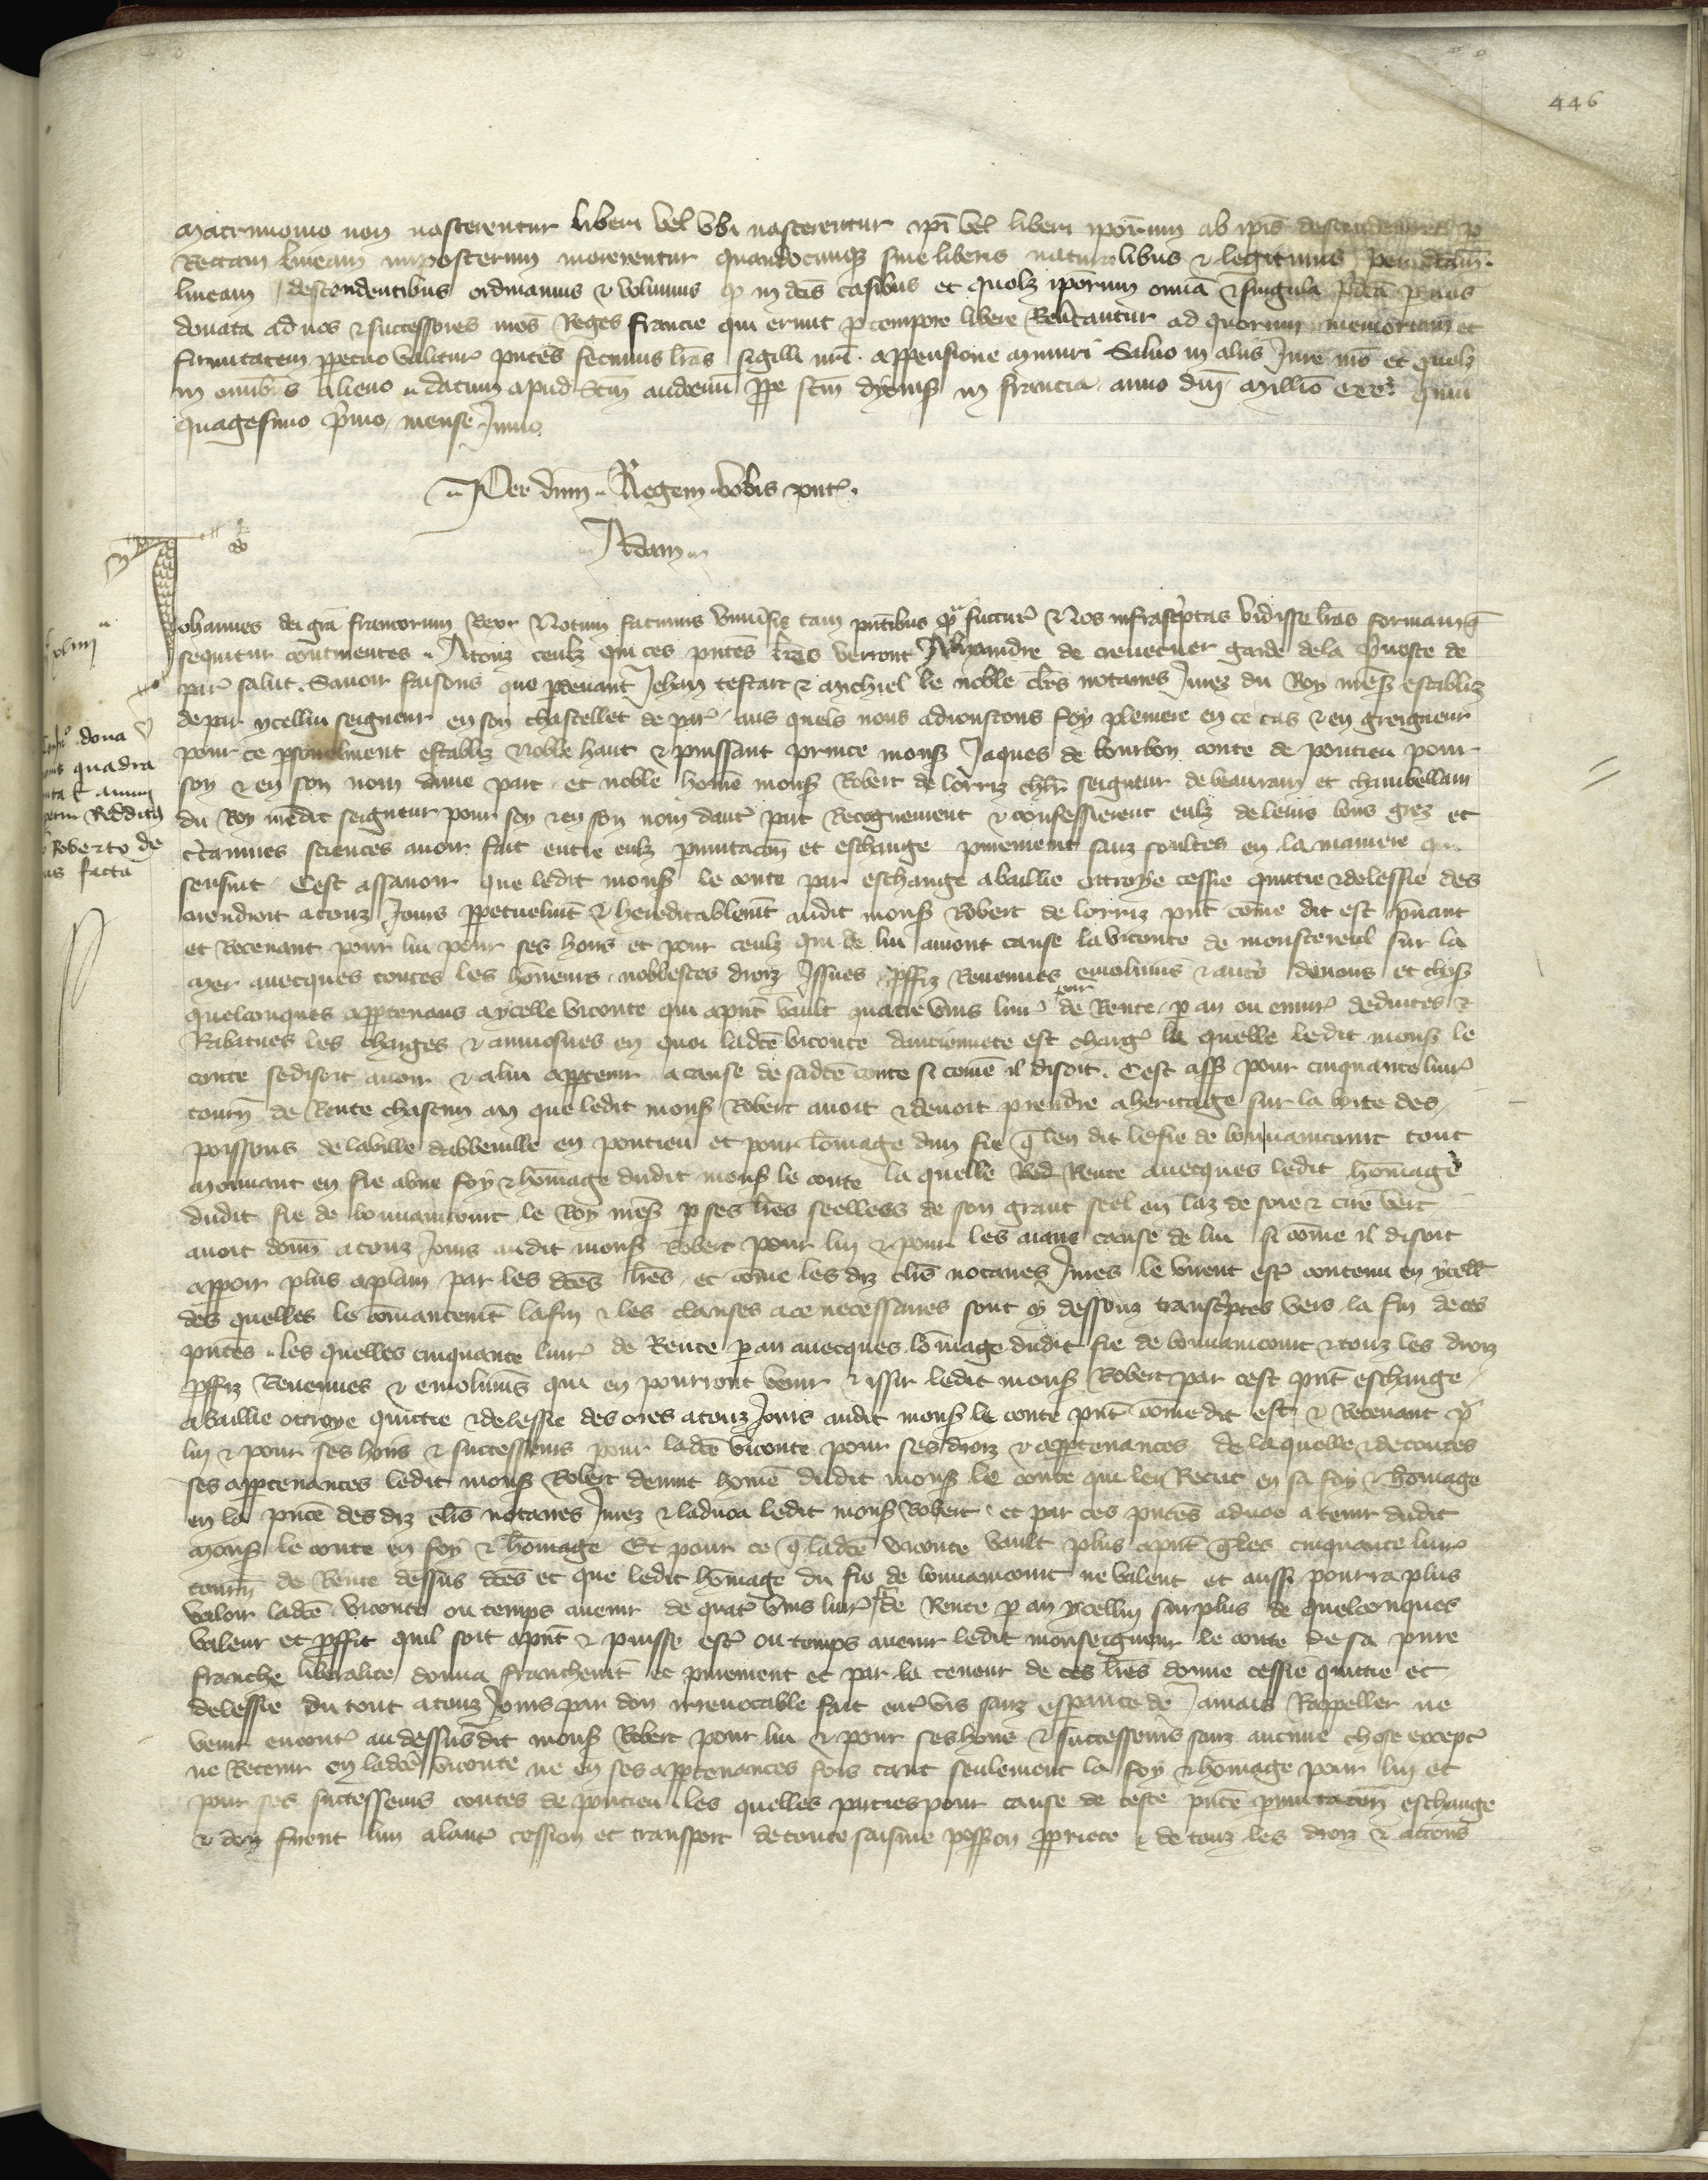 446
matrimonio non nascerentur liberi vel ubi nascerentur ipi vel liberi iporum ab ipis descendentes p
Rectam lineam imposterum morerentur quandocunqz sine liberis naturalibus & legitimis per dcam
lineam descendentibus ordinamus & volumus q in dcis casibus et quolz iporum omia & singula pdca p nos
donata ad nos & successores nros Reges francie qui erunt p tempore libere Revertantur ad quorum memoriam et
firmitatem ppetuo valitur pntes fecimus lras sigilli nri appensione muniri Salvo in aliis Jure nro et quolz
in omnibus alieno datum apud Scm audoenu ppe scm dyonis in francia anno dni millio ccc quin
quagesimo pmo mense Junio
Per dnm Regem vobis pnt
Adam
Johannes dei gra francorum Rex Notum facimus univsis tam pntibus q futur Nos infrascptas vidisse lras formam q
sequitur continentes A touz ceulz qui ces pntes lres verront Alixandre de crevecuer garde de la pvoste de
par salut Savoir faisons que p devant Jehan testart & michiel le noble clers notaires Jurez du Roy nres establiz
de par ycellui seigneur en son chastellet de par aus quels nous adjoustons foy pleniere en ce cas & en greigneur
pour ce psonelment establiz noble haut & puissant prince mons Jaques de bourbon conte de pontieu pour
soy & en son nom dune part et noble home mons Robert de lorriz chlr seigneur de beauram et chambellam
du Roy nredit seigneur pour soy & en son nom daut part Recognurent & confesserent eulz de leurs bons grez et
ctainnes sciences avoir fait entre eulz pmutacon et eschange purement sanz soultes en la maniere qui
sensuit Cest assavoir que ledit mons le conte par eschange a baillie ottroye cessie quittie & delessie des
orendroit a touz Jours ppetuelmt & hereditablemt audit mons Robert de lorriz pnt come dit est pnant
et Recevant pour lui pour ses hoirs et pour ceulz qui de lui auront cause la viconte de monstereul sur la
mer avecques toutes les honeurs noblesces droiz Issues pffiz Revenues emolumens & autres devoirs et choses
quelconques apptenans a ycelle viconte qui apnt vault quatre vins livr tour de Rente p an ou envir deduites &
Rabatues les charges & aumosnes en quoi ladce viconte danciennete est charg la quelle ledit mons le
conte se disoit avoir & a lui apptenir a cause de sadce conte si come il disoit Cest ass pour cinquante livr
tourn de Rente chascun an que ledit mons Robert avoit & devoit prendre a heritage sur la boite des
poissons de la ville dabbeville en pontieu et pour lomage dun fie q len dit le fie de bonnaincourt tout
mouvant en fie a une foy & homage dudit mons le conte la quelle Red Rente avecques ledit homage
dudit fie de bonnaincourt le Roy nres p ses lres seellees de son grant seel en laz de soie & cire vert
avoit donn a touz Jours audit mons Robert pour lui & pour les aians cause de lui si come il disoit
apparoir plus aplain par les dces lres et come les diz clers notaires Jures le virent est contenu en ycell
des quelles le comancemt la fin & les clauses a ce necessaires sont cy dessouz transcptes vers la fin de ces
pntes les quelles cinquante livr de Rente p an avecques lomage dudit fie de bonnaincourt & touz les droiz
pffiz Revenues & emolumens qui en pourront venir & issir ledit mons Robert par cest pnt eschange
a baillie ottroye quittie & delessie des ores a touz Jours audit mons le conte pnt come dit est & Recevant p
lui & pour ses hoirs & successeurs pour ladce viconte pour ses droiz & apptenances de laquelle & de toutes
ses apptenances ledit mons Robert devint home dudit mons le conte qui len Recut en sa foy & homage
en la pnce des diz clers notaires Jurez & ladvoa ledit mons Robert et par ces pntes advoe a tenir dudit
mons le conte en foy & homage Et pour ce q ladce viconte vault plus apnt q les cinquante livr
tourn de Rente dessus dces et que ledit homage du fie de bonnaincourt ne valent et aussi pourra plus
valoir ladce viconte ou temps avenir de quat vins livr t de Rente p an ycellui surplus de quelconques
valeur et pffit quil soit apnt & puisse est ou temps avenir ledit monseigneur le conte de sa pure
franche liberalite donna franchemt et purement et par la teneur de ces lres donne cessie quittie et
delessie du tout a touz Jours par don irrevocable fait entvis sanz esperance de Jamais Rappeller ne
venir encont au dessusdit mons Robert pour lui & pour ses hoirs & successeurs sanz aucune chose except
ne Retenir en ladce viconte ne en ses apptenances fors tant seulement la foy & homage pour lui et
pour ses successeurs contes de pontieu les quelles parties pour cause de ceste pnte pmutacon eschange
& don firent lun a laut cession et transport de toute saisine possion ppriete & de touz les droiz & accions
dona
quadra
annui
Redditus
Roberto de
facta